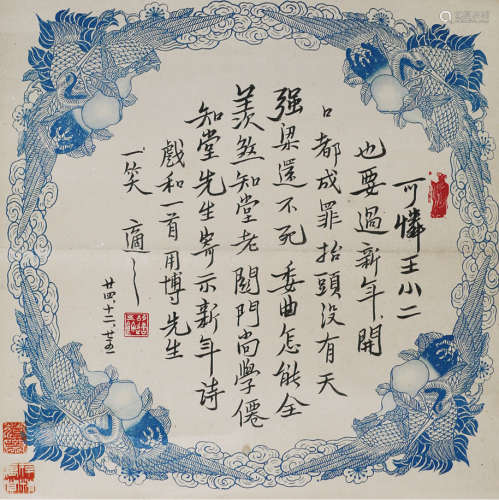 可憐王小二
也要過新年開
口都成罪抬頭没有天
强梁還不死委曲怎能全
羨煞知堂老關門尚學僊
知堂先生寄示新年詩
戲和一首用博先生
一笑 適之
廿四十二廿五